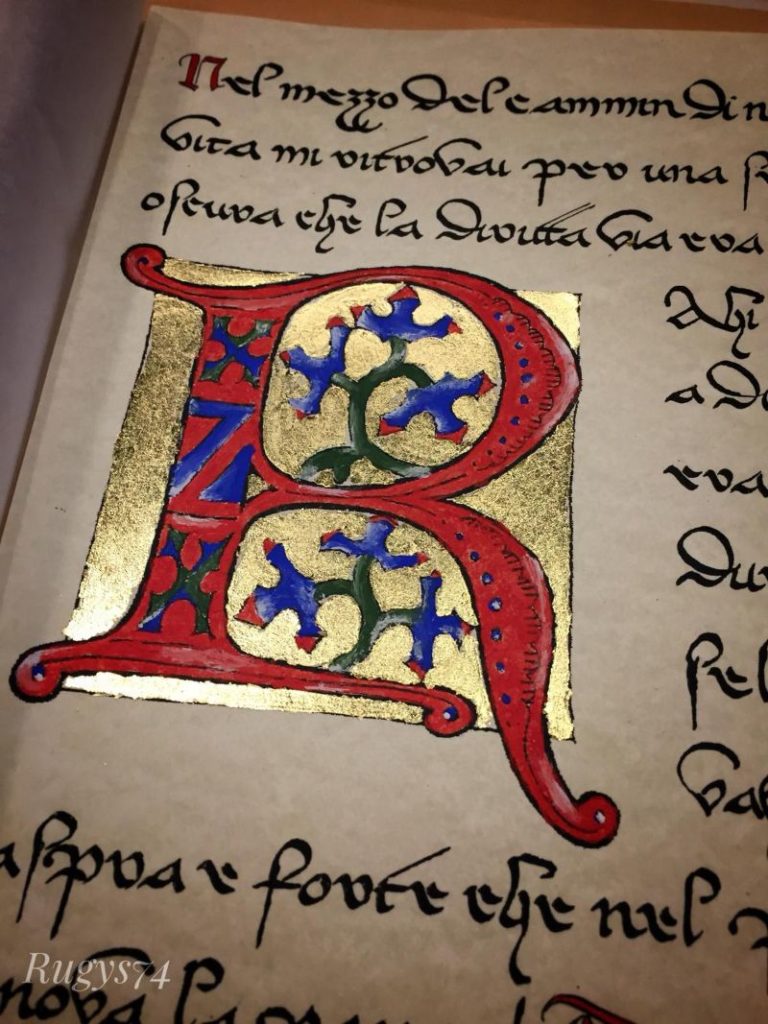 Nel mezzo del cammin di n
vita mi ritrovai per una se
oscura che la diritta via era
R
Ahi
a d
era
dur
sel
va
aspra e forte che nel p
nova la
Rugys74